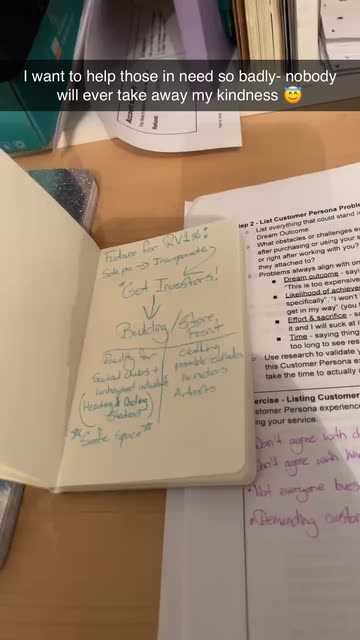 I want to help those in need so badly- nobody
will ever take away my kindness 😇
Refund:
Future for RV196:
Sole pro → Incorporate
"Get Investors!
Building / Store front
Facility for
Social Clubs +
unhoused individuals
(Heating & Cooling
Stations)
"Safe space"
clothing
possible estates
Vendors
Artists
Step 2 - List Customer Persona Proble
List everything that could stand i
Dream Outcome.
What obstacles or challenges e
after purchasing or using your s
or right after working with you?
they attached to?
Problems always align with on
Dream outcome - say
"This is too expensive
Likelihood of achieve
specifically", "I won't
get in my way" (you
Effort & sacrifice - s
it and I will suck at
Time - saying thing
too long to see res
Use research to validate y
this Customer Persona ex
take the time to actually
ercise - Listing Customer
stomer Persona experien
ng your service.
Don't agree with
Don't agree with
Not everyone
Demanding custom